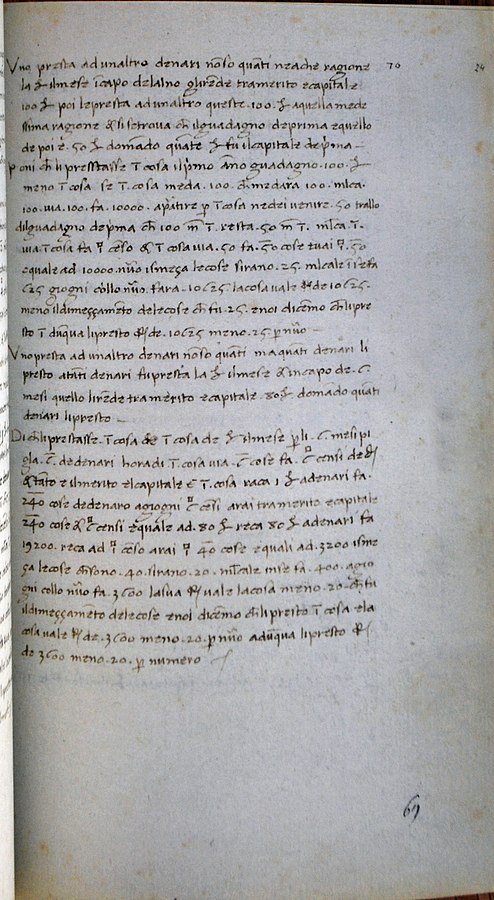 Uno presta ad unaltro denari nōso quāti neache ragione 70 24
la £ ilmese ī capo delalno glirēde tramerito ecapitale
100 £ poi lepresta ad unaltro queste .100. £ aquella mede
ssima ragione & si setrova ch̄ ilguadagno deprima equello
de poi è .50 £ domādo quāte £ fu ilcapitale de p̄ma —
Poni ch̄ li presstasse ī cosa ilp̄mo āno guadagno .100. £
meno ī cosa se ī cosa meda .100. ch̄ medara .100. mlca.
100. via .100. fa .10000. apatire p̄ ī cosa nedei venire .50 trallo
dilguadagno dep̄ma ch̄ 100 m̄ ī. resta .50 m̄ ī. mlca. ī.
via. ī cosa fa ī cēso & ī cosa via .50 fa .50 cose
equale ad 10000 nūo ismeça lecose sirano .25. mlcale ī se fa
625 giogni collo nūo. fara .10625. lacosa vale de 10625.
meno ildimeççamēto delecose ch̄ fu .25. enoi dicemo ch̄ lipre
sto ī dūqua lipresto de .10625 meno .25. p̄ nūo —
Uno presta ad unaltro denari nōso quāti maquati denari li
presto atāti denari fu presta la £ ilmese & incapo de .6.
mesi quello lirēde tramerito ecapitale .80 £ domādo quāti
denari lipresto —
Di ch̄ liprestasse. ī cosa de ī cosa de £ ilmese p̄ li .6. mesi pi
gla .6. de denari hora di ī cosa via .6 cose fa. 6 censi de
& stato e ilmerito elcapitale è ī cosa raca ī £ adenari fa.
240 cose dedenaro agiogni 6 cēsi arai tramerito ecapitale
240 cose & 6 censi equale ad .80 £ reca 80 £ adenari fa
19200. reca ad ī cēso arai ī 40 cose equali ad .3200 isme
ça lecose ch̄ sono .40. sirano .20. mlcale inse fa .400. agio
gni collo nūo fa .3600 lasua vale lacosa meno .20. ch̄ fu
ildimeççamēto delecose enoi dicemo ch̄ lipresto ī cosa ela
cosa vale de .3600 meno .20. p̄ nūo adūqua lipresto
de 3600 meno .20. p̄ numero
69